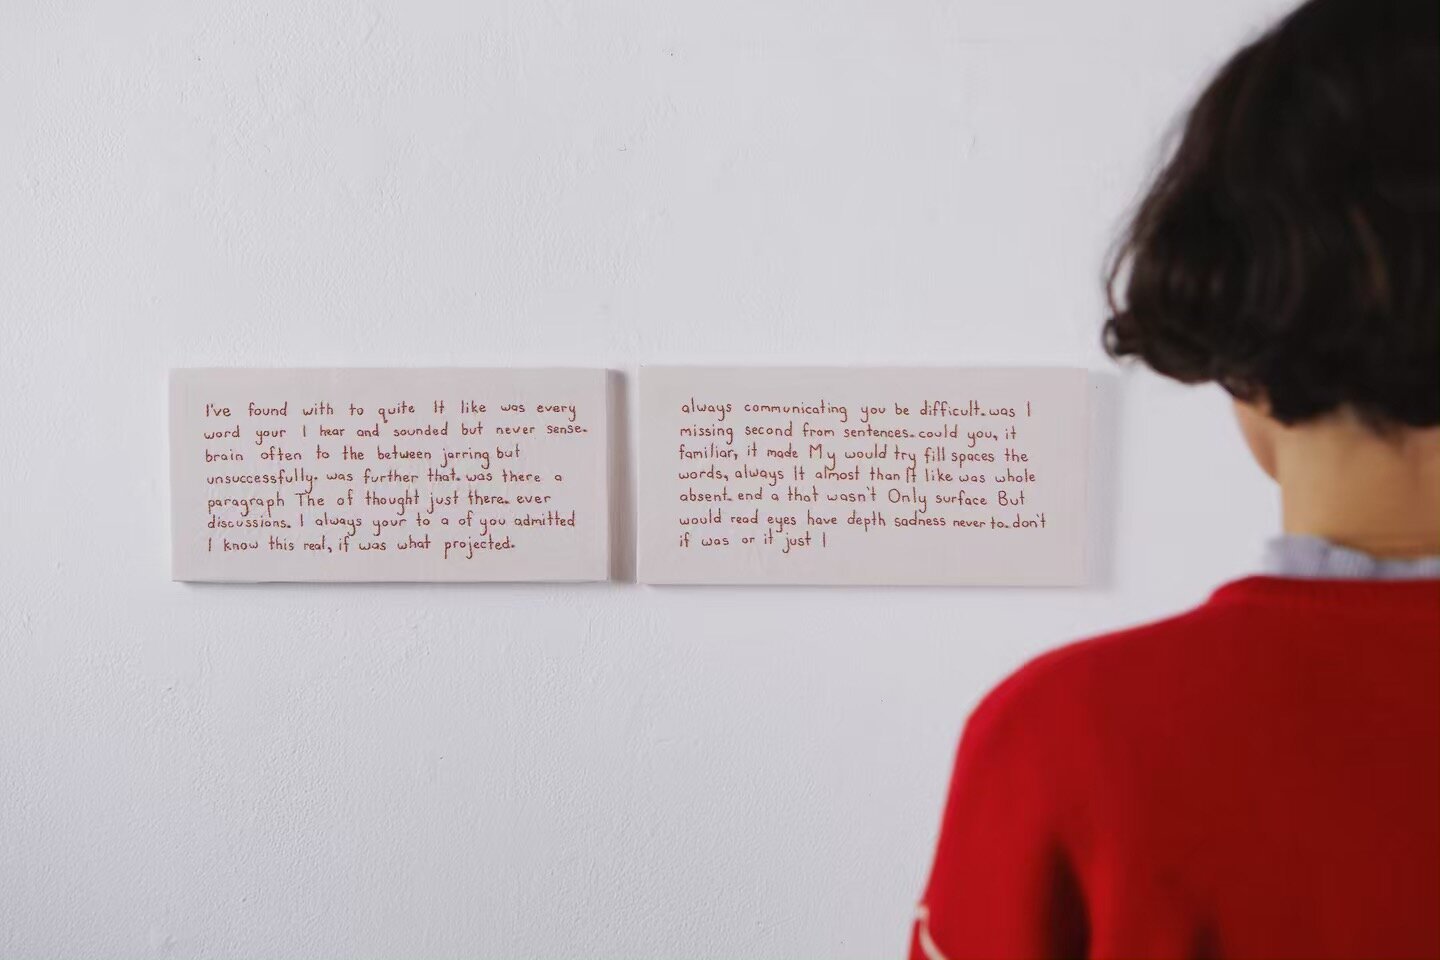 I've found with to quite It like was every
word your I hear and sounded but never sense.
brain often to the between jarring but
unsuccessfully. was further that. was there a
paragraph The of thought just there. ever
discussions. I always your to a of you admitted
I know this real, if was what projected.
always communicating you be difficult. was I
missing second from sentences. could you, it
familiar, it made My would try fill spaces the
words, always It almost than It like was whole
absent. end a that wasn't Only surface But
would read eyes have depth sadness never to. don't
if was or it just I